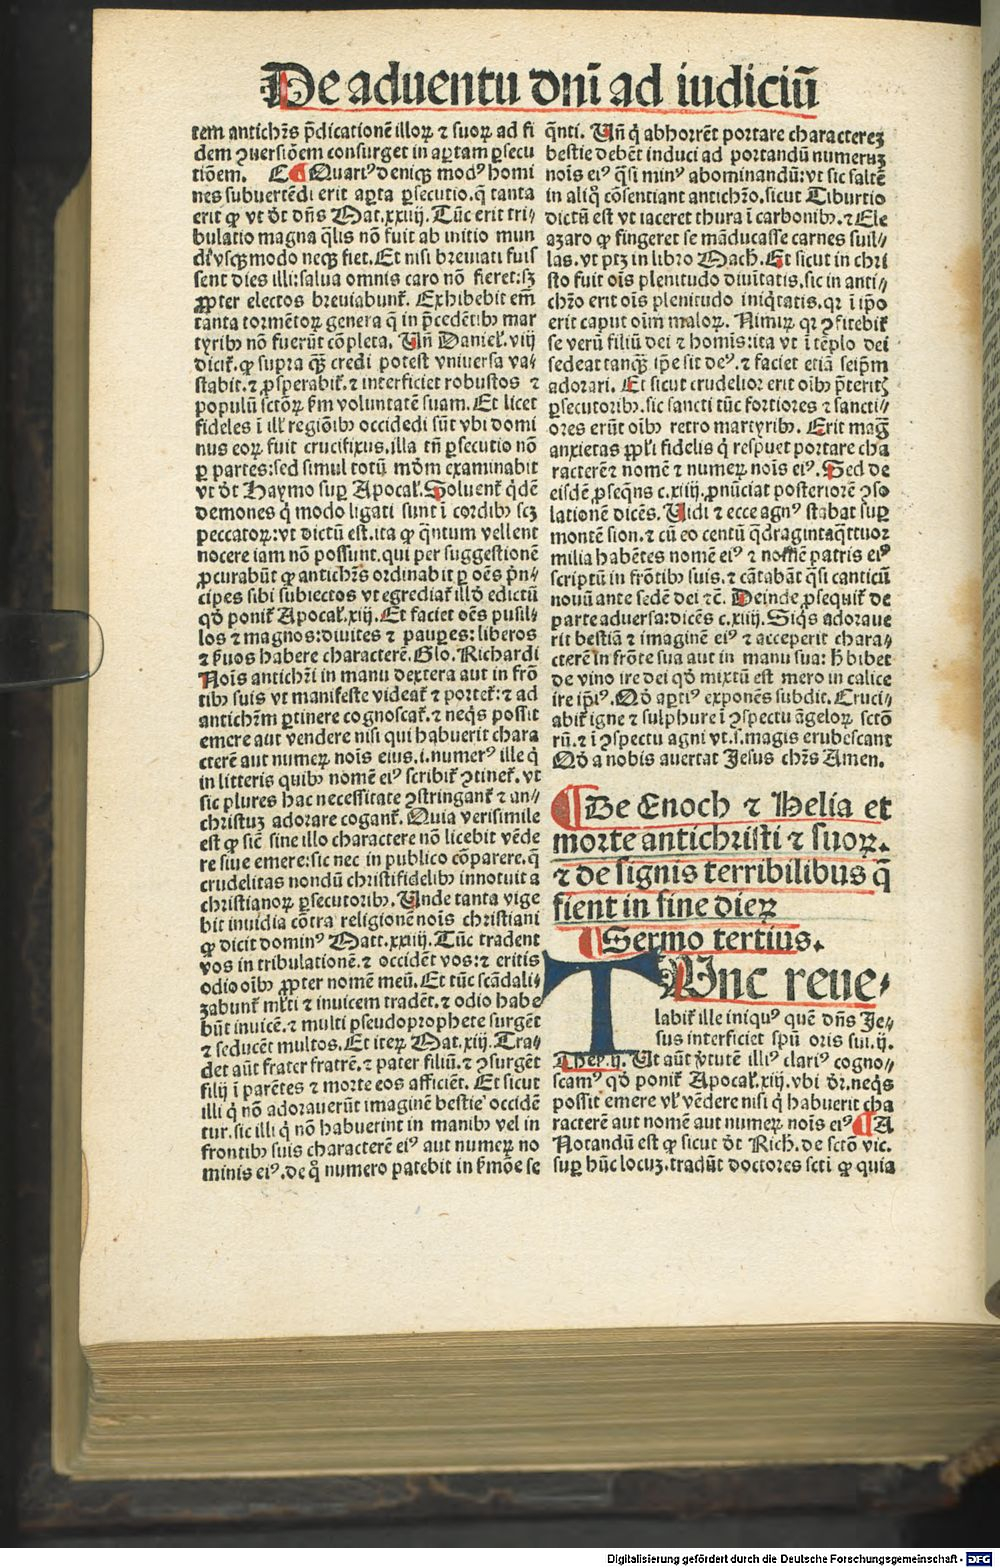 De aduentu dnī ad iudiciū
tem antichr̄s p̄dicationē illoꝝ ⁊ suoꝝ ad fi
dem ꝯuersiōem consurget in aꝑtam ꝑsecu
tiōem. C ¶ Quartꝰ deniqꝫ modꝰ homi
nes subuertēdi erit aꝑta ꝑsecutio. q̄ tanta
erit ꝙ vt dt̄ dn̄s Mat.xxiiij. Tūc erit tri⸗
bulatio magna q̄lis nō fuit ab initio mun
di vsqꝫ modo neqꝫ fiet. Et nisi breuiati fuis
sent dies illi: salua omnis caro nō fieret: sꝫ
ꝓpter electos breuiabunt᷑. Exhibebit em̄
tanta tormētoꝝ genera q̄ in p̄cedētibꝫ mar
tyribꝫ nō fuerūt cōpleta. Vn̄ Daniel᷑. viij
dicit᷑. ꝙ supra qꝫ̄ credi potest vniuersa va⸗
stabit. ⁊ ꝓsperabit᷑. ⁊ interficiet robustos ⁊
populū sctōꝝ ẜm voluntatē suam. Et licet
fideles ī ill᷑ regiōibꝫ occidēdi sūt vbi domi
nus eoꝝ fuit crucifixus. illa tn̄ ꝑsecutio nō
ꝑ partes: sed simul totū mōm examinabit
vt dt̄ Haymo suꝑ Apocal᷑. Soluent᷑ q̇dē
demones q̇ modo ligati sunt ī cordibꝫ scꝫ
peccatoꝝ: vt dictū est. ita ꝙ q̄ntum vellent
nocere iam nō possunt. qui per suggestionē
ꝓcurabūt ꝙ antichr̄s ordinabit ꝑ oēs p̄n⸗
cipes sibi subiectos vt egrediat᷑ illḋ edictū
qḋ ponit᷑ Apocal᷑.xiij. Et faciet oēs pusil⸗
los ⁊ magnos: diuites ⁊ pauꝑes: liberos
⁊ ẜuos habere characterē. Glo. Richardi
Nois antichri in manu dextera aut in frō
tibꝫ suis vt manifeste videat᷑ ⁊ portet᷑: ⁊ ad
antichr̄m ꝑtinere cognoscat᷑. ⁊ neq̇s possit
emere aut vendere nisi qui habuerit chara
cterē aut numeꝝ nois eius. i. numerꝰ ille q̇
in litteris quibꝫ nomē eiꝰ scribit᷑ ꝯtinet᷑. vt
sic plures hac necessitate ꝯstringant᷑ ⁊ an⸗
christuꝫ adorare cogant᷑. Quia verisimile
est ꝙ sic̄ sine illo charactere nō licebit vēde
re siue emere: sic nec in publico cōparere. q̄
crudelitas nondū christifidelibꝫ innotuit a
christianoꝝ ꝑsecutoribꝫ. Unde tanta vige
bit inuidia cōtra religionē nois christiani
ꝙ dicit dominꝰ Matt.xxiiij. Tūc tradent
vos in tribulationē. ⁊ occidēt vos: ⁊ eritis
odio oībꝫ ꝓpter nomē meū. Et tūc scādali⸗
zabunt᷑ ml᷑ti ⁊ inuicem tradēt. ⁊ odio habe
būt inuicē. ⁊ multi pseudoprophete surgēt
⁊ seducēt multos. Et iteꝝ Mat.xiij. Tra⸗
det aūt frater fratrē. ⁊ pater filiū. ⁊ ꝯsurgēt
filij ī parētes ⁊ morte eos afficiēt. Et sicut
illi q̇ nō adorauerūt imaginē bestie occidē
tur. sic illi q̇ nō habuerint in manibꝫ vel in
frontibꝫ suis characterē eiꝰ aut numeꝝ no
minis eiꝰ. de qͦ numero patebit in ẜmōe se
q̄nti. Vn̄ q̇ abhorrēt portare characterez
bestie debēt induci ad portandū numeruꝫ
nois eiꝰ q̄si minꝰ abominandū: vt sic saltē
in aliq̇ cōsentiant antichr̄o. sicut Tiburtio
dictū est vt iaceret thura ī carbonibꝫ. ⁊ Ele
azaro ꝙ fingeret se māducasse carnes suil⸗
las. vt ptꝫ in libro Mach. Et sicut in chri
sto fuit oīs plenitudo diuītatis. sic in anti⸗
chr̄o erit oīs plenitudo iniq̇tatis. qꝛ ī ip̄o
erit caput oīm maloꝝ. Nimiꝝ qꝛ ꝯfitebit᷑
se verū filiū dei ⁊ homīs: ita vt ī tēplo dei
sedeat tanqꝫ̄ ip̄e sit deꝰ. ⁊ faciet etiā seip̄m
adorari. Et sicut crudelior erit oībꝫ p̄teritꝭ
ꝑsecutoribꝫ. sic sancti tūc fortiores ⁊ sancti⸗
ores erūt oībꝫ retro martyribꝫ. Erit mag̅
anxietas ppl᷑i fidelis q̇ respuet portare cha
racterē ⁊ nomē ⁊ numeꝝ nois eiꝰ. Sed de
eisdē ꝓseq̄ns c.xiiij. ꝓnūciat posteriorē ꝯso
lationē dicēs. Uidi ⁊ ecce agnꝰ stabat suꝑ
montē sion. ⁊ cū eo centū q̄draginta q̄ttuor
milia habētes nomē eiꝰ ⁊ nomē patris eiꝰ
scriptū in frōtibꝫ suis. ⁊ cātabāt q̄si canticū
nouū ante sedē dei ⁊c̄. Deinde ꝓsequit᷑ de
parte aduersa: dicēs c.xiiij. Siq̇s adoraue
rit bestiā ⁊ imaginē eiꝰ ⁊ acceperit chara⸗
cterē in frōte sua aut in manu sua: h̄ bibet
de vino ire dei qḋ mixtū est mero in calice
ire ip̄iꝰ. Qḋ aꝑtiꝰ exponēs subdit. Cruci⸗
abit᷑ igne ⁊ sulphure ī ꝯspectu āgeloꝝ sctō
rū. ⁊ ī ꝯspectu agni vt. s. magis erubescant
Qḋ a nobis auertat Jesus chr̄s Amen.
¶ De Enoch ⁊ Helia et
morte antichristi ⁊ suoꝝ.
⁊ de signis terribilibus q̄
fient in fine dieꝝ
¶ Sermo tertius.
TUnc reue⸗
labit᷑ ille iniquꝰ quē dn̄s Je⸗
sus interficiet spū oris sui. ij.
Thes. ij. Ut aūt v̄tutē illiꝰ clariꝰ cogno⸗
scamꝰ qḋ ponit᷑ Apocal᷑.xiij. vbi dr̄. neq̇s
possit emere vl᷑ vēdere nisi q̇ habuerit cha
racterē aut nomē aut numeꝝ nois eiꝰ ¶ A
Notandū est ꝙ sicut dt̄ Rich. de sctō vic.
suꝑ hūc locuꝫ. tradūt doctores scti ꝙ quia
Digitalisierung gefördert durch die Deutsche Forschungsgemeinschaft - DFG